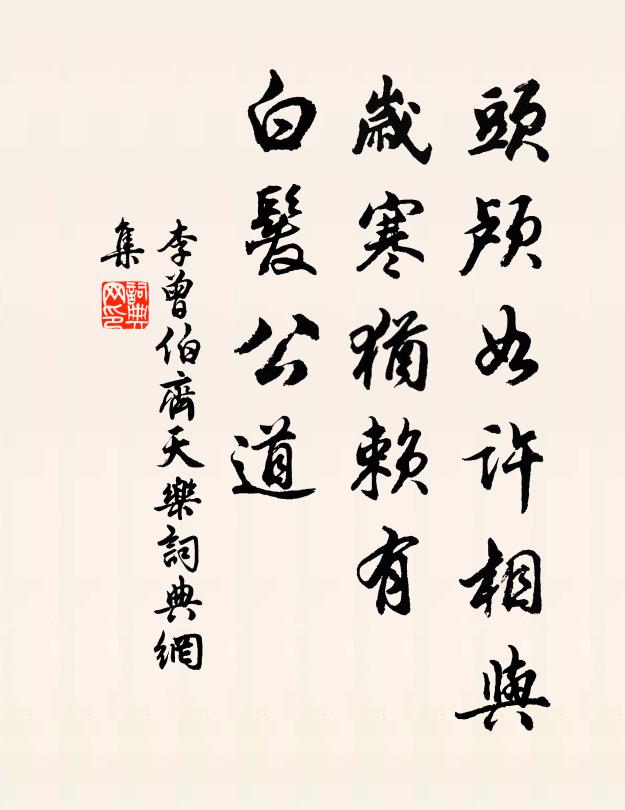 頭顱如許相與
歲寒猶賴有
白髮公道
李曾伯齊天樂詞典網
集
詞典
网印